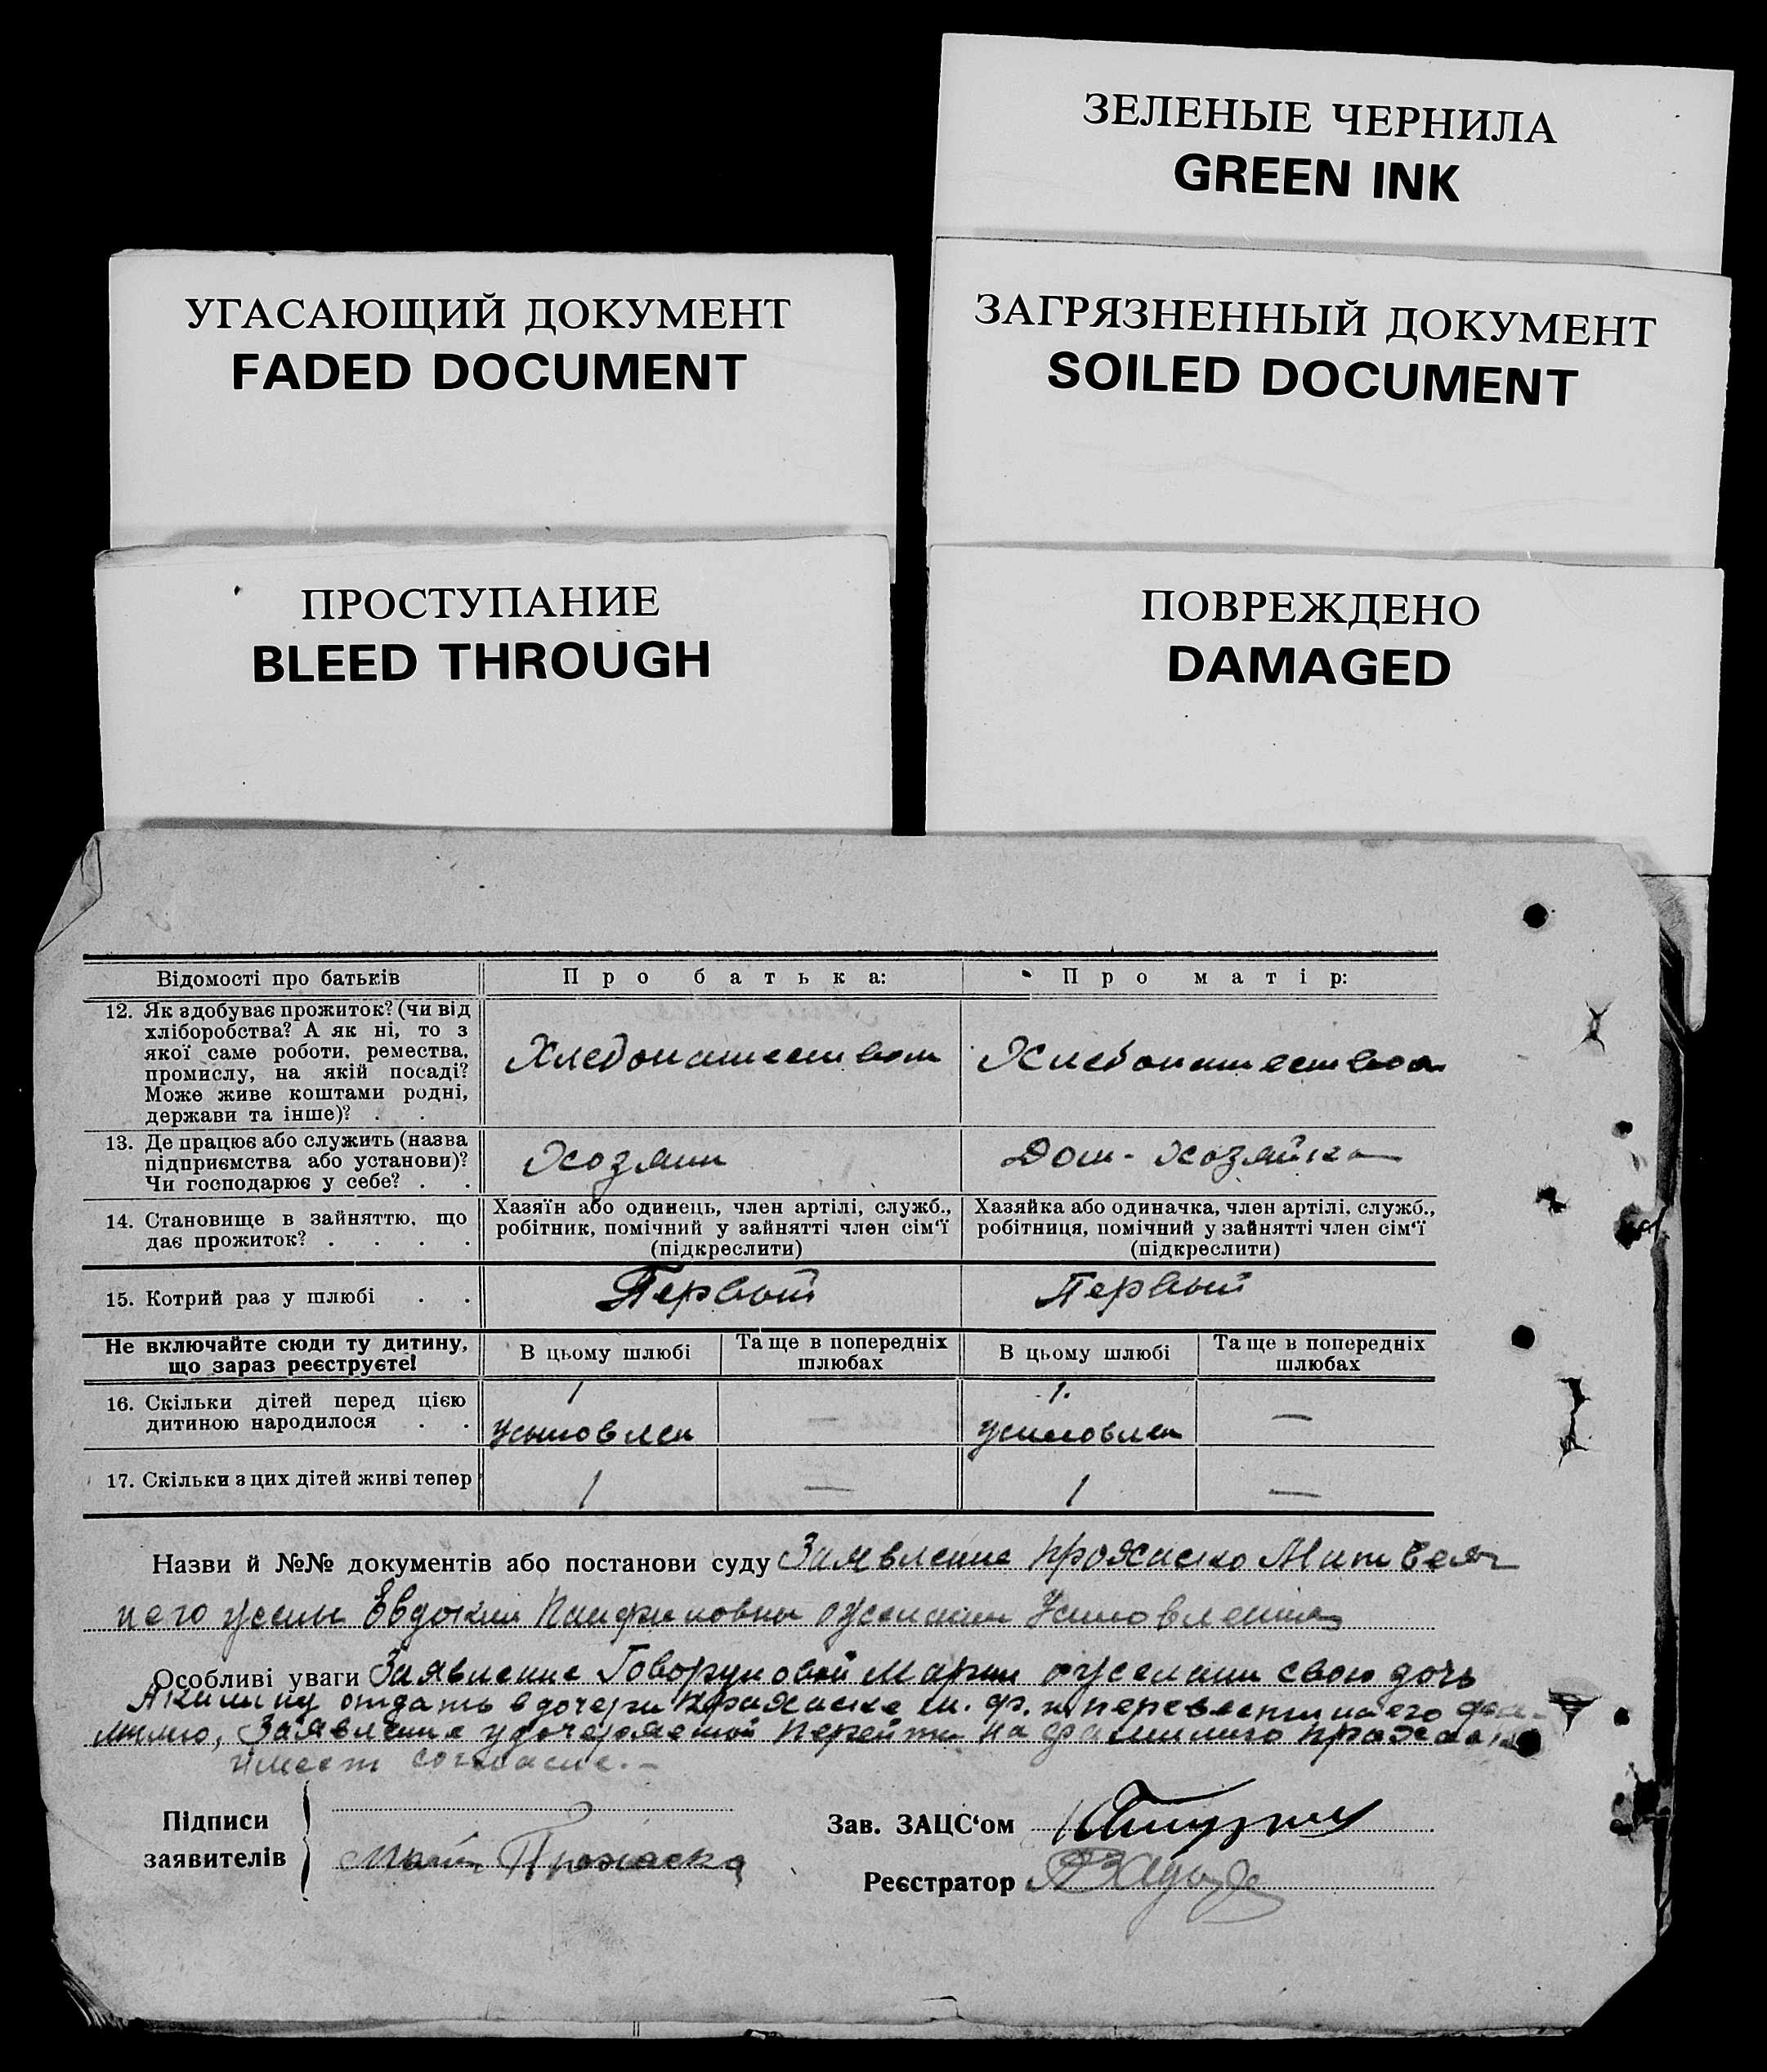 ЗЕЛЕНЫЕ ЧЕРНИЛА
GREEN INK
УГАСАЮЩИЙ ДОКУМЕНТ
FADED DOCUMENT
ЗАГРЯЗНЕННЫЙ ДОКУМЕНТ
SOILED DOCUMENT
ПРОСТУПАНИЕ
BLEED THROUGH
ПОВРЕЖДЕНО
DAMAGED
Відомості про батьків
Про батька:
Про матір:
12. Як здобуває прожиток? (чи від
хліборобства? А як ні, то з
якої саме роботи, ремества,
промислу, на якій посаді?
Може живе коштами родні,
держави та інше)? . .
Хлебопашеством
Хлебопашеством
13. Де працює або служить (назва
підприємства або установи)?
Чи господарює у себе? . .
Хозяин
Дом-хозяйка
14. Становище в зайняттю, що
дає прожиток? . . . .
Хазяїн або одинець, член артілі, служб.,
робітник, помічний у зайнятті член сім'ї
(підкреслити)
Хазяйка або одиначка, член артілі, служб.,
робітниця, помічний у зайнятті член сім'ї
(підкреслити)
15. Котрий раз у шлюбі . .
Первый
Первый
Не включайте сюди ту дитину,
що зараз реєструєте!
В цьому шлюбі
Та ще в попередніх
шлюбах
В цьому шлюбі
Та ще в попередніх
шлюбах
16. Скільки дітей перед цією
дитиною народилося . .
1
усыновлен
—
1.
усиновлен
—
17. Скільки з цих дітей живі тепер
1
—
1
—
Назви й №№ документів або постанови суду Заявление
Евдокии Панфиловны
Особливі уваги Заявление Говоруновой Марии о желании свою дочь
отдать в дочери и перевести на его фа-
милию, Заявление удочеряемой перейти на фамилию
имеет согласие. –
Підписи
заявителів
Зав. ЗАЦС'ом
Реєстратор